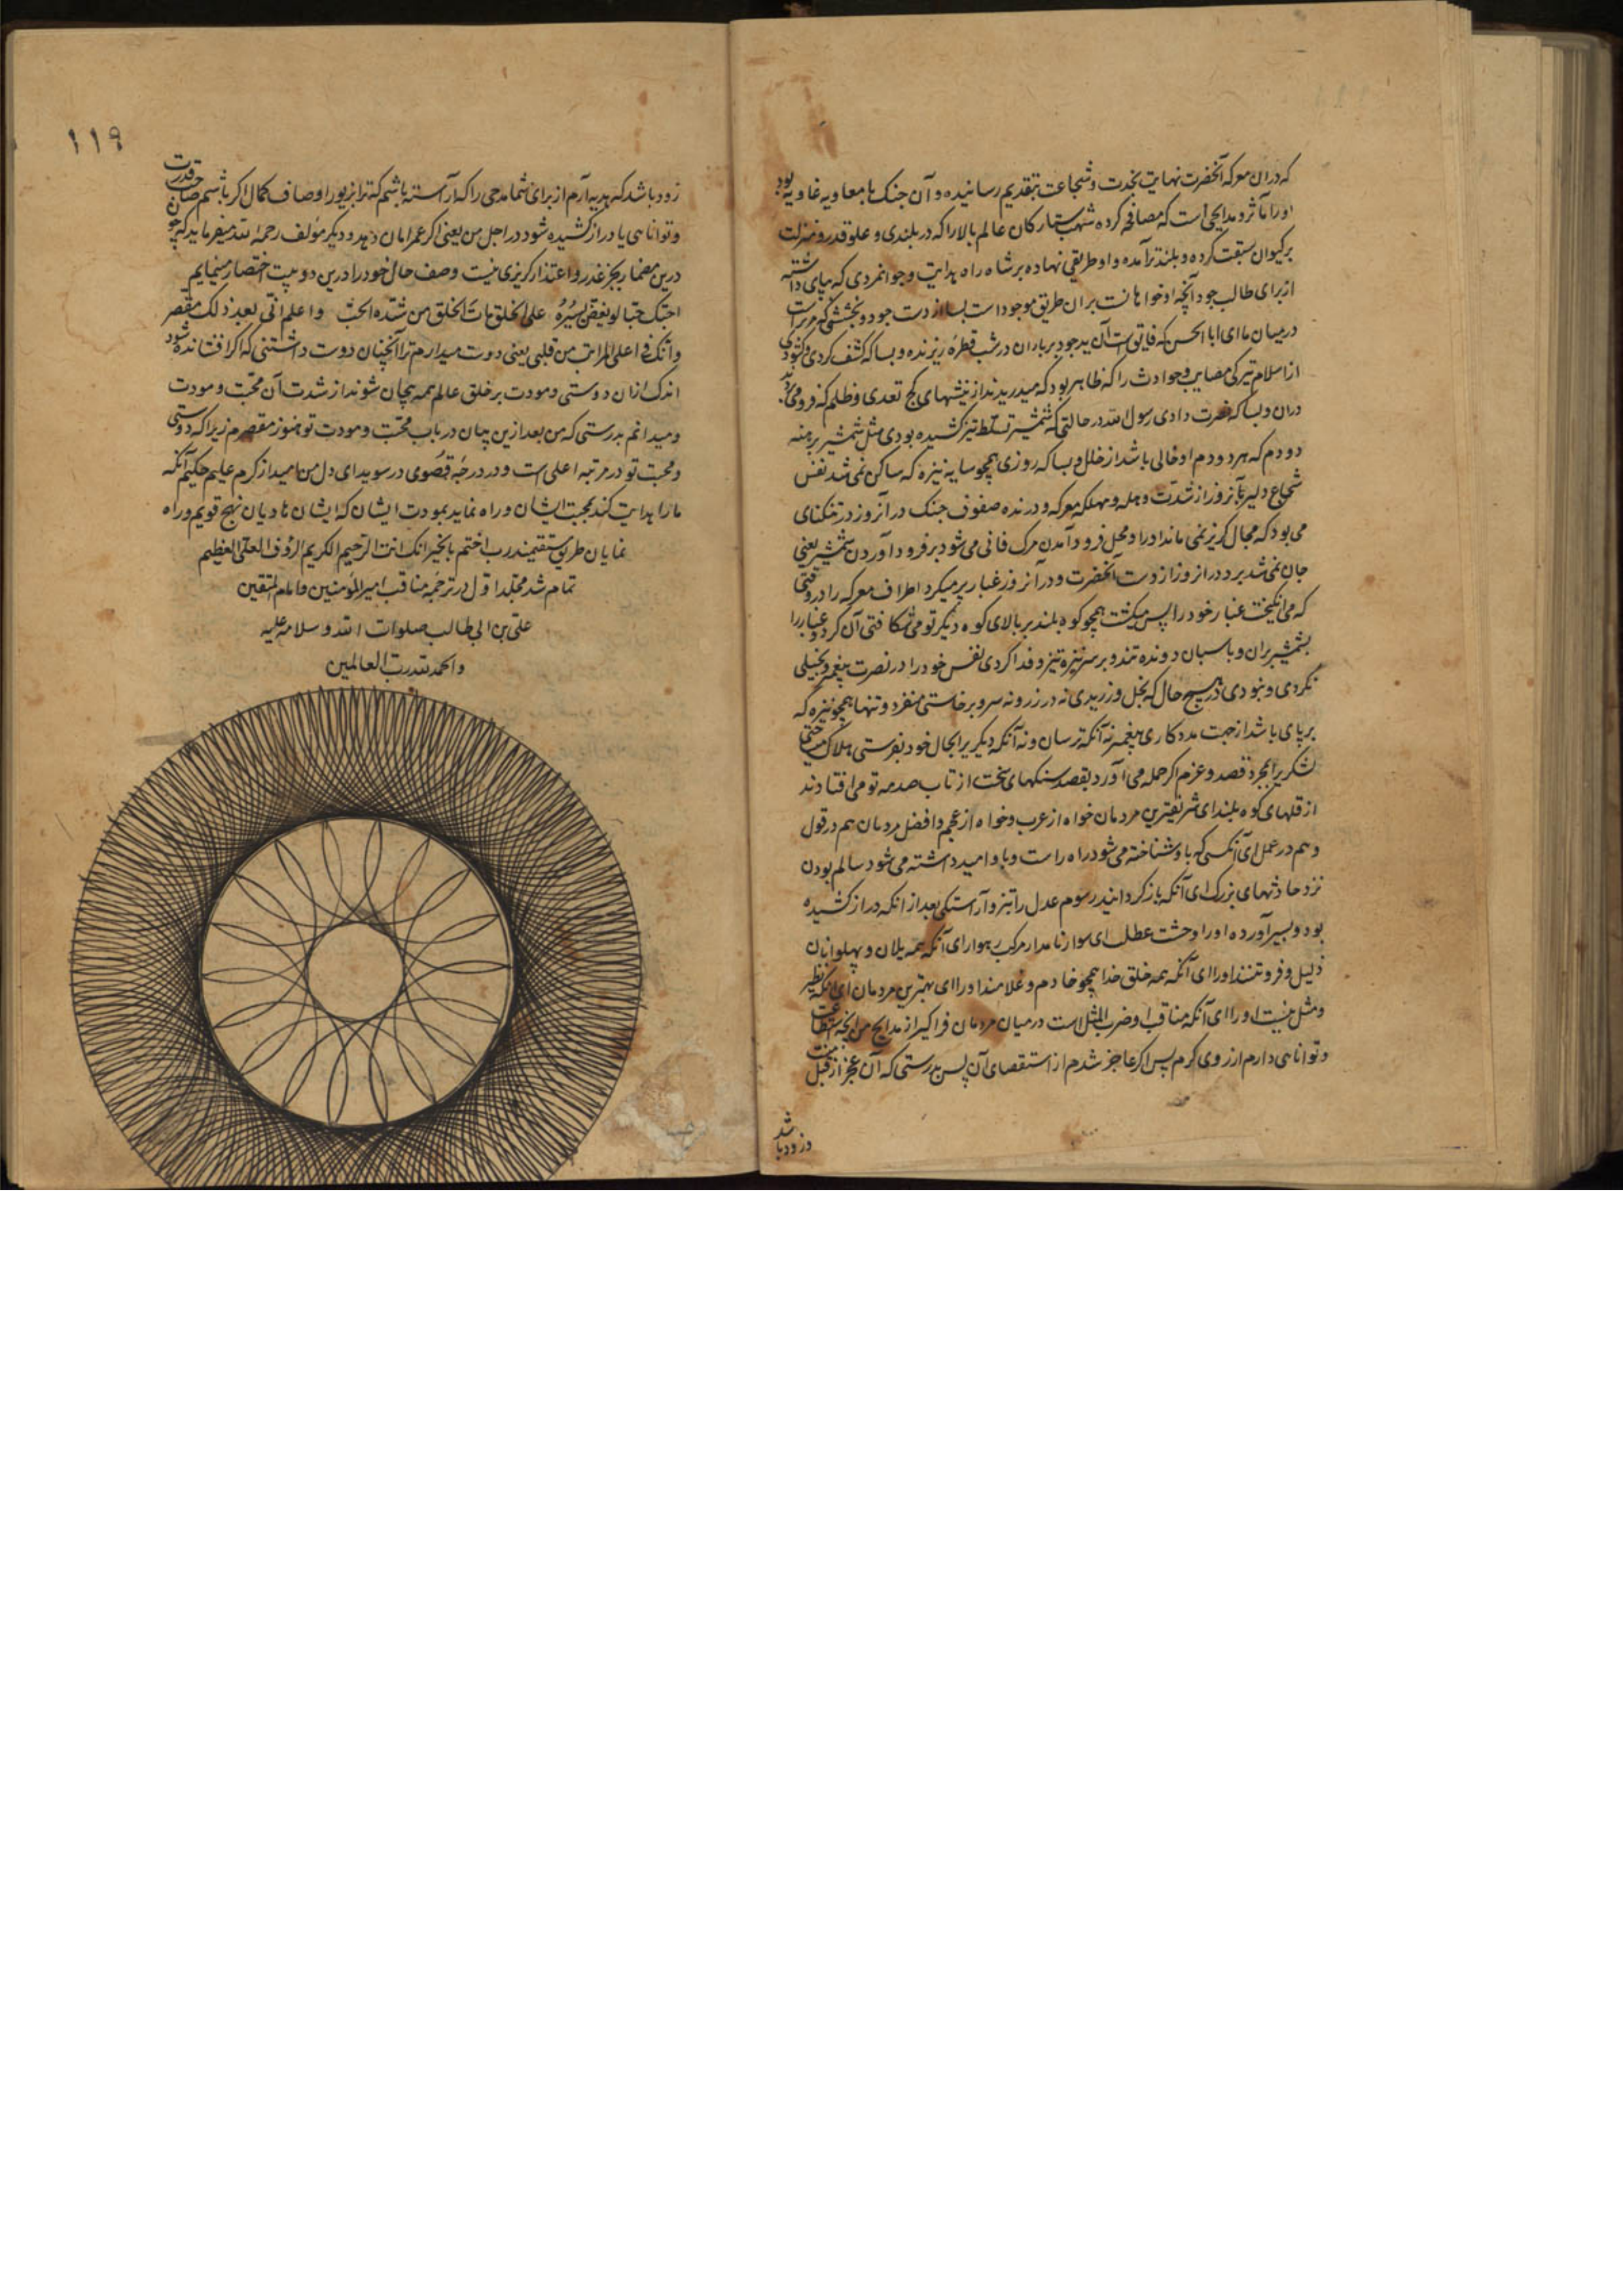 که دران معرکه آنحضرت نهایت نجدت و شجاعت بتقدیم رسانیده و آن جنک با معاویه غاویه بود
اورا مآثر و مدایحی است که مصافحه کرده شهب ستارکان عالم بالا را که در بلندی و علو قدر و منزلت
برکیوان سبقت کرده و بلندتر آمده و او طریقی نهاده بر شاه راه هدایت و جوانمردی که بپای داشته
از برای طالب جود آنچه او خواهانست بران طریق موجود است بسا از دست جود و بخششی که مر تراست
در میان ما ای ابا الحسن که فایق است آن ید جود بر باران در شب قطره ریزنده و بسا که کشف کردی و کشودی
از اسلام تیرکی مصایب و حوادث را که ظاهر بود که میدریدند از نیشهای کج تعدی و ظلم که فرو می‌بردند
دران و بسا که نصرت دادی رسول الله در حالتی که شمشیر تسلط تیز کشیده بودی مثل شمشیر برهنه
دو دم که هر دو دم او خالی باشد از خلل و بسا که روزی همچو سایه نیزه که ساکن نمی شد نفس
شجاع دلیر تا آنروز از شدت وهله و مهلکه معرکه و درنده صفوف جنک در آنروز در تنکنای
می بود که مجال کریز نمی ماند اورا و محل فرود آمدن مرک فانی می شود بر فرود آوردن شمشیر یعنی
جان نمی شد برد در انروز از دست آنحضرت و در آنروز غبار پر میکرد اطراف معرکه را در وقتی
که می انکیخت غبار خود را پس میکشت همچو کوه بلند بر بالای کوه دیکر تو می شکافتی آن کرد و غبار را
بشمشیر بران و باسبان دونده تند و بر سر نیزه تیز و فدا کردی نفس خود را در نصرت پیغمبر و بخیلی
نکردی و نبودی در هیچ حال که بخل ورزیدی نه در زر و نه سر و برخاستی منفرد و تنها همچو نیزه که
بر پای باشد از جهت مددکاری پیغمبر نه آنکه ترسان و نه آنکه دیکریرا بحال خود بفرستی هلاک میساختی
لشکریرا بمجرد قصد و عزم اکر حمله می آورد بقصد سنکهای سخت از تاب صدمه تو می افتادند
از قلهای کوه بلند ای شریفترین مردمان خواه از عرب و خواه از عجم و افضل مردمان هم در قول
و هم در عمل ای آنکسی که باو شناخته می شود راه راست و باو امید داشته می شود سالم بودن
نزد حادثهای بزرک ای آنکه بازکردانید رسوم عدل را تیز و آراستکی بعد از انکه دراز کشیده
بود و بسیر آورده اورا وحشت عطل ای سوار نامدار مرکب رهوار ای آنکه همه یلان و پهلوانان
ذلیل و فروتنند اورا ای آنکه همه خلق خدا همچو خادم و غلامند اورا ای بهترین مردمان ای آنکه نظیر
و مثل نیست اورا ای آنکه مناقب او ضرب المثل است در میان مردمان فراکیر از مدایح من آنچه استطاعت
و توانائی دارم از روی کرم پس اکر عاجز شدم از استقصای آن پس بدرستی که آن عجز از قبل منست
و زود باشد
۱۱۹
زود باشد که هدیه آرم از برای شما مدحی را که آراسته باشم که ترا بزیور اوصاف کمال اکر باشم صاحب قدرت
و توانائی یا دراز کشیده شود در اجل من یعنی اکر عمر امان دهد و دیکر مؤلف رحمه الله میفرماید که چون
درین مضمار بجز عذر و اعتذار کریزی نیست وصف حال خود را درین دو بیت اختصار مینمایم
احبک حبا لو یفض یسیره علی الخلق مات الخلق من شده الحب واعلم انی بعد ذلک مقصر
وانک فی اعلی المراتب من قلبی یعنی دوست میدارم ترا آنچنان دوست داشتنی که اکر افشانده شود
اندک ازان دوستی و مودت بر خلق عالم همه بیجان شوند از شدت آن محبت و مودت
و میدانم بدرستی که من بعد ازین بیان در باب محبت و مودت تو هنوز مقصرم زیرا که دوستی
و محبت تو در مرتبه اعلی است و در درجه قصوی در سویدای دل من امید از کرم علیم حکیم آنکه
مارا هدایت کند بمحبت ایشان و راه نماید بمودت ایشان که ایشان هادیان نهج قویم و راه
نمایان طریق مستقیمند رب اختم بالخیر انک انت الرحیم الکریم الرؤف العلی العظیم
تمام شد مجلد اول در ترجمه مناقب امیر المؤمنین و امام المتقین
علی بن ابی طالب صلوات الله و سلامه علیه
والحمد لله رب العالمین